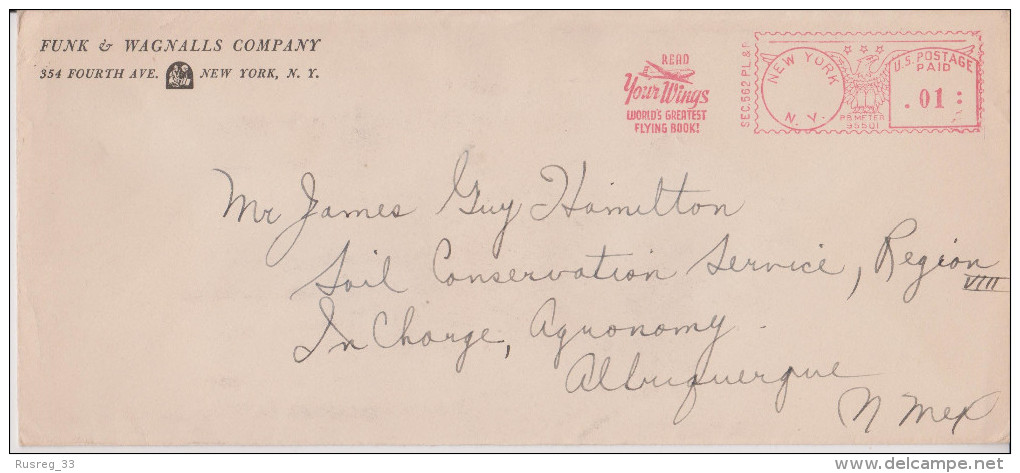 FUNK & WAGNALLS COMPANY
354 FOURTH AVE. NEW YORK, N. Y.
READ
Your Wings
WORLD'S GREATEST
FLYING BOOK!
SEC.562 P.L.& R
NEW YORK
N. Y.
P.B. METER
95501
U.S. POSTAGE
PAID
.01
Mr James Guy Hamilton
Soil Conservation Service, Region
VIII
In Charge, Agronomy.
Albuquerque
N Mex
Rusreg_33
delcampe.net